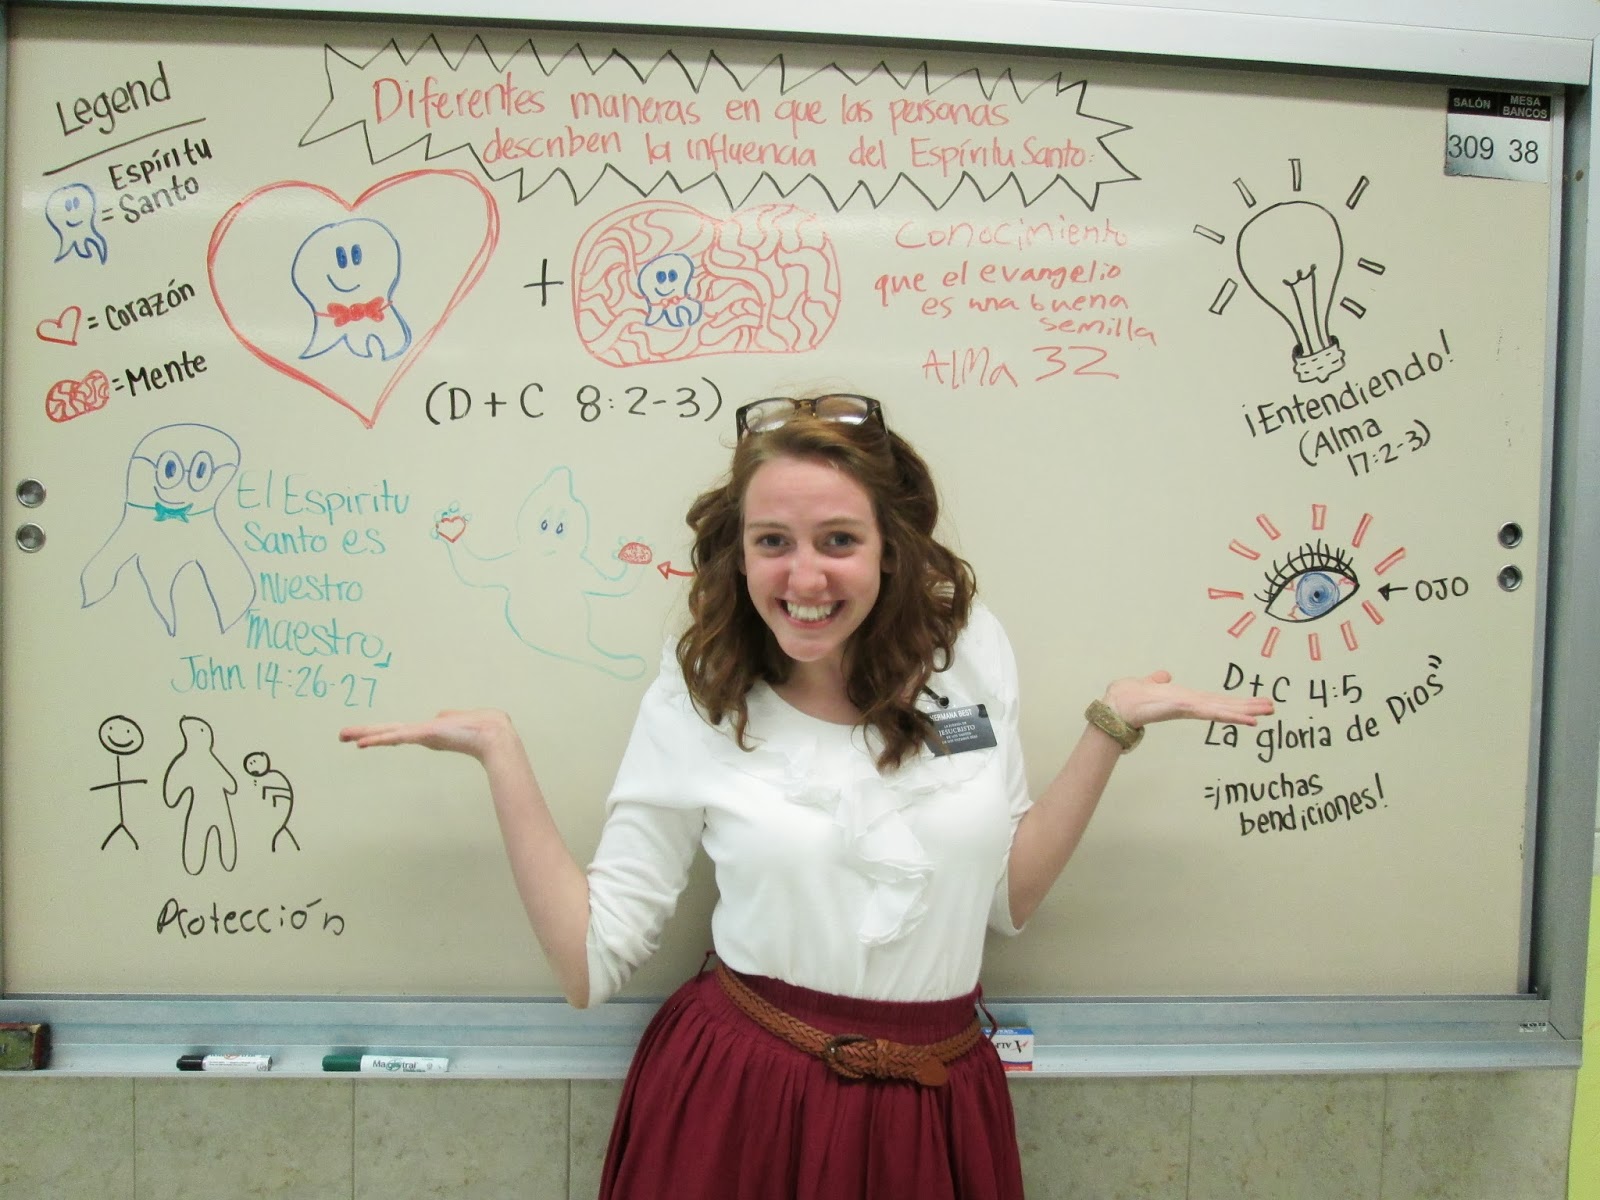 Legend
Espíritu
= Santo
= Corazón
= Mente
Diferentes maneras en que las personas
describen la influencia del Espíritu Santo:
+
(D + C 8:2-3)
Conocimiento
que el evangelio
es una buena
semilla
Alma 32
¡Entendiendo!
(Alma
17:2-3)
SALÓN MESA
BANCOS
309 38
El Espiritu
Santo es
nuestro
maestro,
John 14:26-27
Protección
← OJO
D+C 4:5
La gloria de Dios
=¡muchas
bendiciones!
HERMANA BEST
JESUCRISTO
Magistral